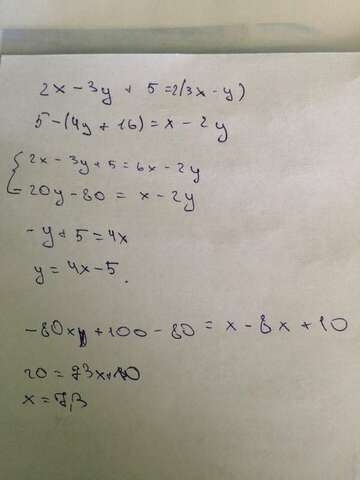 2x - 3y + 5 = 2(3x - y)
5 - (4y + 16) = x - 2y
{ 2x - 3y + 5 = 6x - 2y
-20y - 80 = x - 2y
-y + 5 = 4x
y = 4x - 5.
-80x + 100 - 80 = x - 8x + 10
20 = 73x + 10
x = 7,3